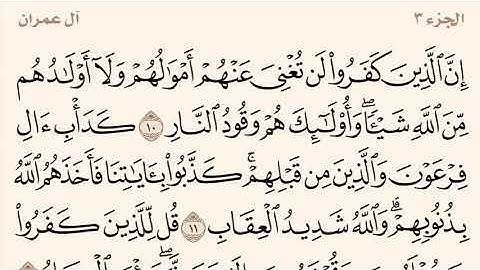 الجزء ٣ آل عمران
إِنَّ ٱلَّذِينَ كَفَرُوا۟ لَن تُغْنِىَ عَنْهُمْ أَمْوَٰلُهُمْ وَلَآ أَوْلَٰدُهُم
مِّنَ ٱللَّهِ شَيْـًٔا ۖ وَأُو۟لَٰٓئِكَ هُمْ وَقُودُ ٱلنَّارِ ١٠ كَدَأْبِ ءَالِ
فِرْعَوْنَ وَٱلَّذِينَ مِن قَبْلِهِمْ ۚ كَذَّبُوا۟ بِـَٔايَٰتِنَا فَأَخَذَهُمُ ٱللَّهُ
بِذُنُوبِهِمْ ۗ وَٱللَّهُ شَدِيدُ ٱلْعِقَابِ ١١ قُل لِّلَّذِينَ كَفَرُوا۟